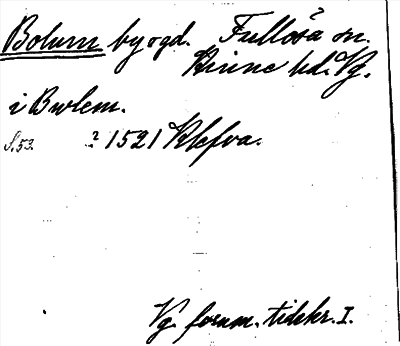 Bolum by ogd. Fullösa sn.
Kinne hd. Vg.
i Bwlem.
S. 53. ? 1521 Klefva.
Vg. fornm. tidskr. I.